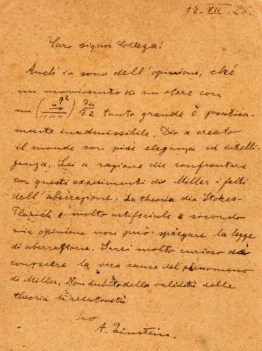 12. XII. 25.
Caro signor Collega!
Anch io sono dell'opinione, che
un movimento da un etere con
un tanto grande è pratica-
mente inadmissibile. Dio a creato
il mondo con più eleganza ed intelli-
genza. Lei a ragione che confrontare
con questi experimenti di Miller i fatti
dell'aberrazione. La theoria di Stokes-
Planck è molto artificiale e secondo
mia opinione non può spiegare la legge
di aberrazione. Sarei molto curioso di
conoscere la vera causa del phenomeno
di Miller. Non dubito della validità della
theoria di relatività
Suo
A. Einstein.